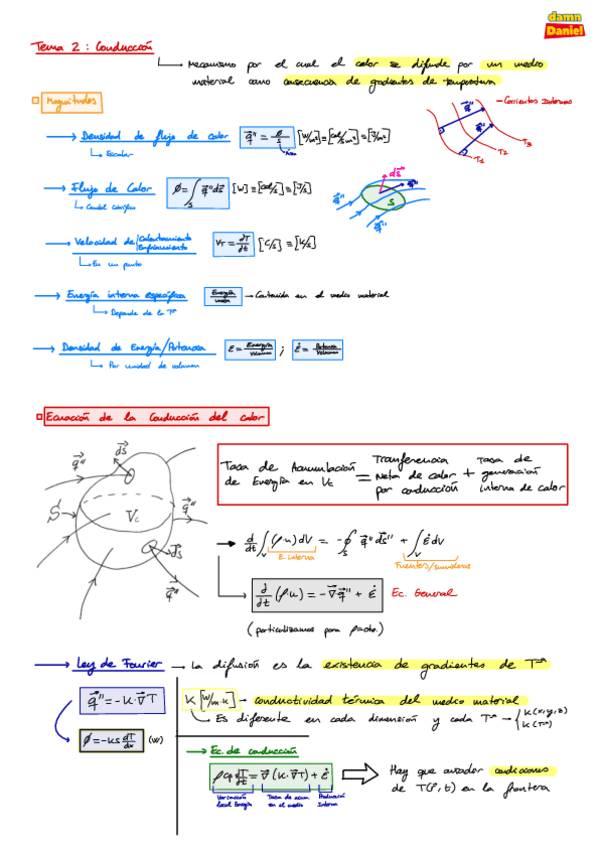 damn
Daniel
Tema 2 : Conducción
Mecanismo por el cual el calor se difunde por un medio
material como consecuencia de gradientes de temperatura
Magnitudes
Corrientes Isotermas
q'' q'' T1 T2 T3
Densidad de flujo de calor q'' = φ/S [W/m²] ≡ [cal/s·m²] ≡ [J/s·m²]
Área
Escalar
Flujo de Calor φ = ∫S q'' dS [W] ≡ [cal/s] ≡ [J/s]
Caudal calorífico
dS q'' q'' S q''
Velocidad de Calentamiento/Enfriamiento VT = dT/dt [C/s] ≡ [K/s]
En un punto
Energía interna específica Energía/masa → Contenida en el medio material
Depende de la Tª
Densidad de Energía/Potencia E = Energía/Volumen ; Ė = Potencia/Volumen
Por unidad de volumen
Ecuación de la Conducción del calor
q'' dS q'' S Vc dS q''
Tasa de Acumulación de Energía en Vc = Tranferencia Neta de calor por conducción + Tasa de generación interna de calor
d/dt ∫V (ρ·u) dV = -∮S q'' dS'' + ∫V Ė dV
E interna
Fuentes/sumideros
∂/∂t (ρ·u) = -∇q'' + Ė Ec. General
(particularizamos para ρ=cte.)
Ley de Fourier → La difusión es la existencia de gradientes de Tª
q'' = -K·∇T
K [W/m·K] → conductividad térmica del medio material
Es diferente en cada dimensión y cada Tª → K(x,y,z)
K(Tª)
φ = -KS dT/dx (W)
Ec. de conducción
ρCp dT/dt = ∇(K·∇T) + Ė
Variación local Energía
Tasa de acum en el medio
Producción Interna
Hay que añadir condiciones
de T(r,t) en la frontera